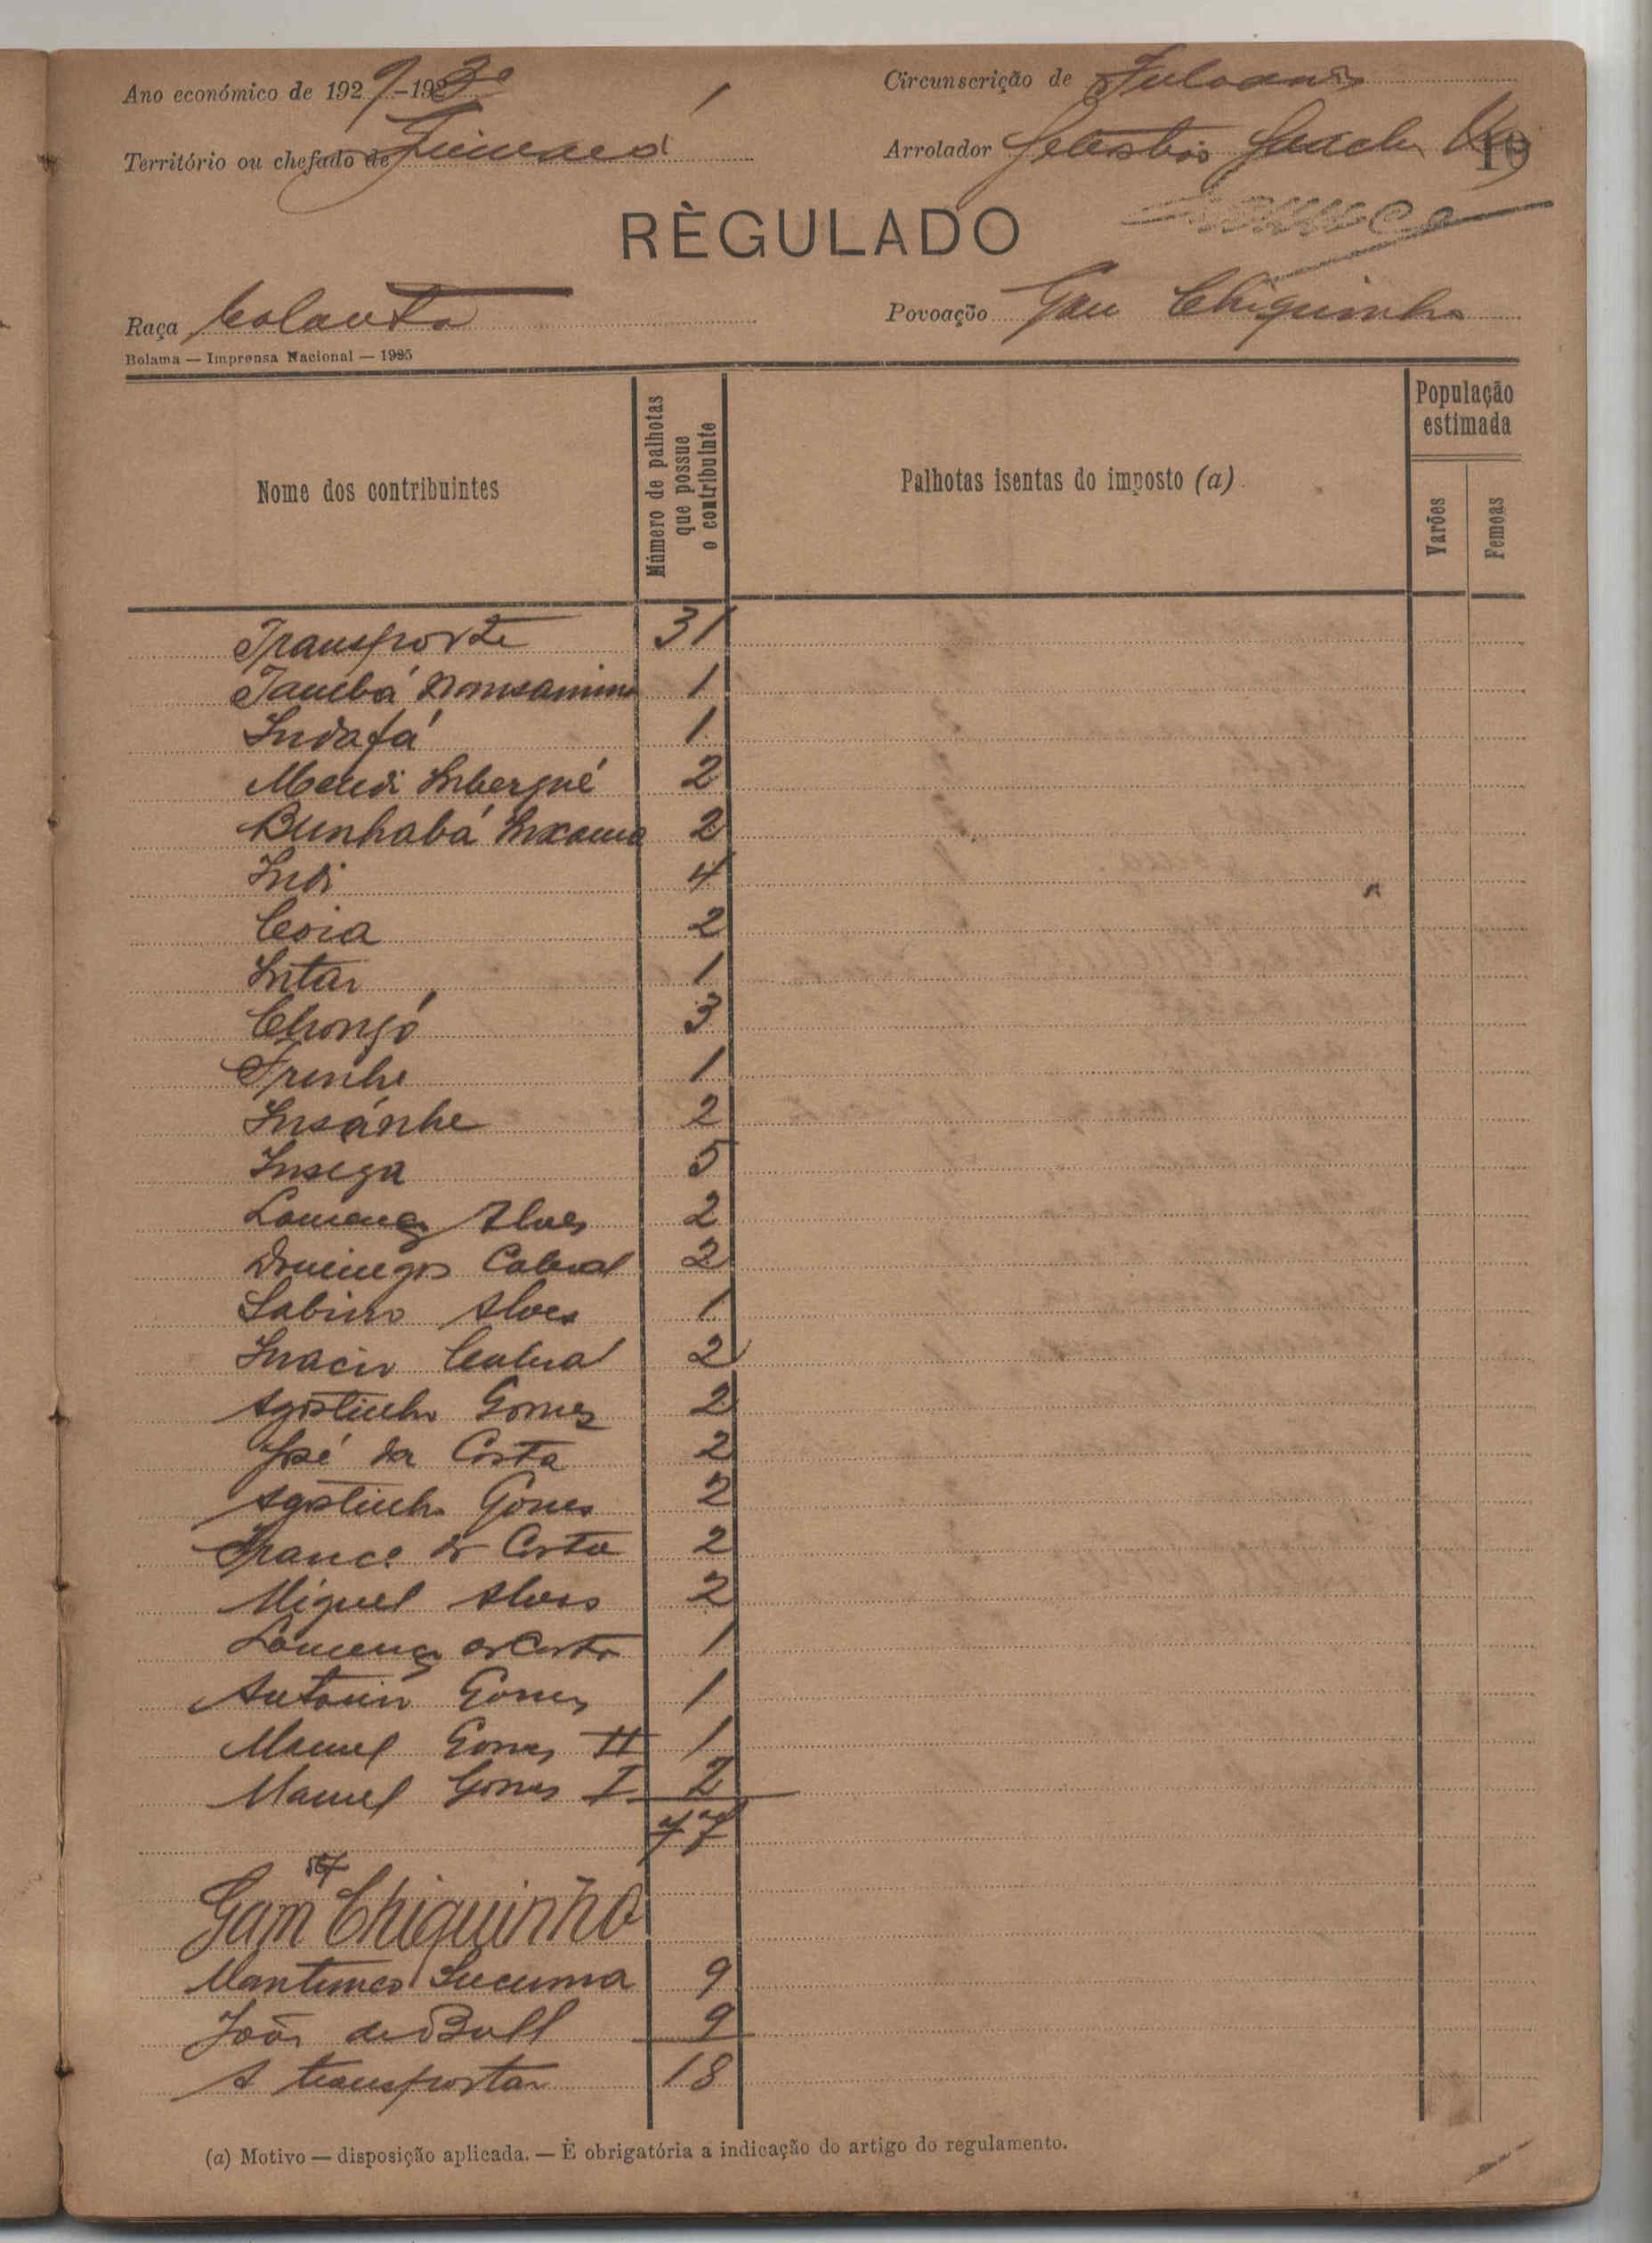 Ano económico de 1929-1930
Circunscrição de Fulacunda
Território ou chefado de
Arrolador
19
RÈGULADO
Raça
Povoação Gau Chiquinho
Bolama — Imprensa Nacional — 1925
Nome dos contribuintes
Número de palhotas que possue o contribuinte
Palhotas isentas do imposto (a)
População estimada
Varões
Femeas
Transporte 31
Tambá 1
Indafá 1
Mendi Imbergné 2
Bunhabá 2
Indi 4
Coia 2
Intar 1
Chongó 3
1
Insánhe 2
Insega 5
Lourenço Alves 2
Domingos Cabral 2
Sabino Alves 1
Inacio Cabral 2
Agostinho Gomes 2
José da Costa 2
Agostinho Gomes 2
Franco. da Costa 2
Miguel Alves 2
Lourenço da Costa 1
António Gomes 1
Manuel Gomes II 1
Manuel Gomes I 2
77
Gam Chiquinho
Sucuma 9
João de Bull 9
A transportar 18
(a) Motivo — disposição aplicada. — È obrigatória a indicação do artigo do regulamento.